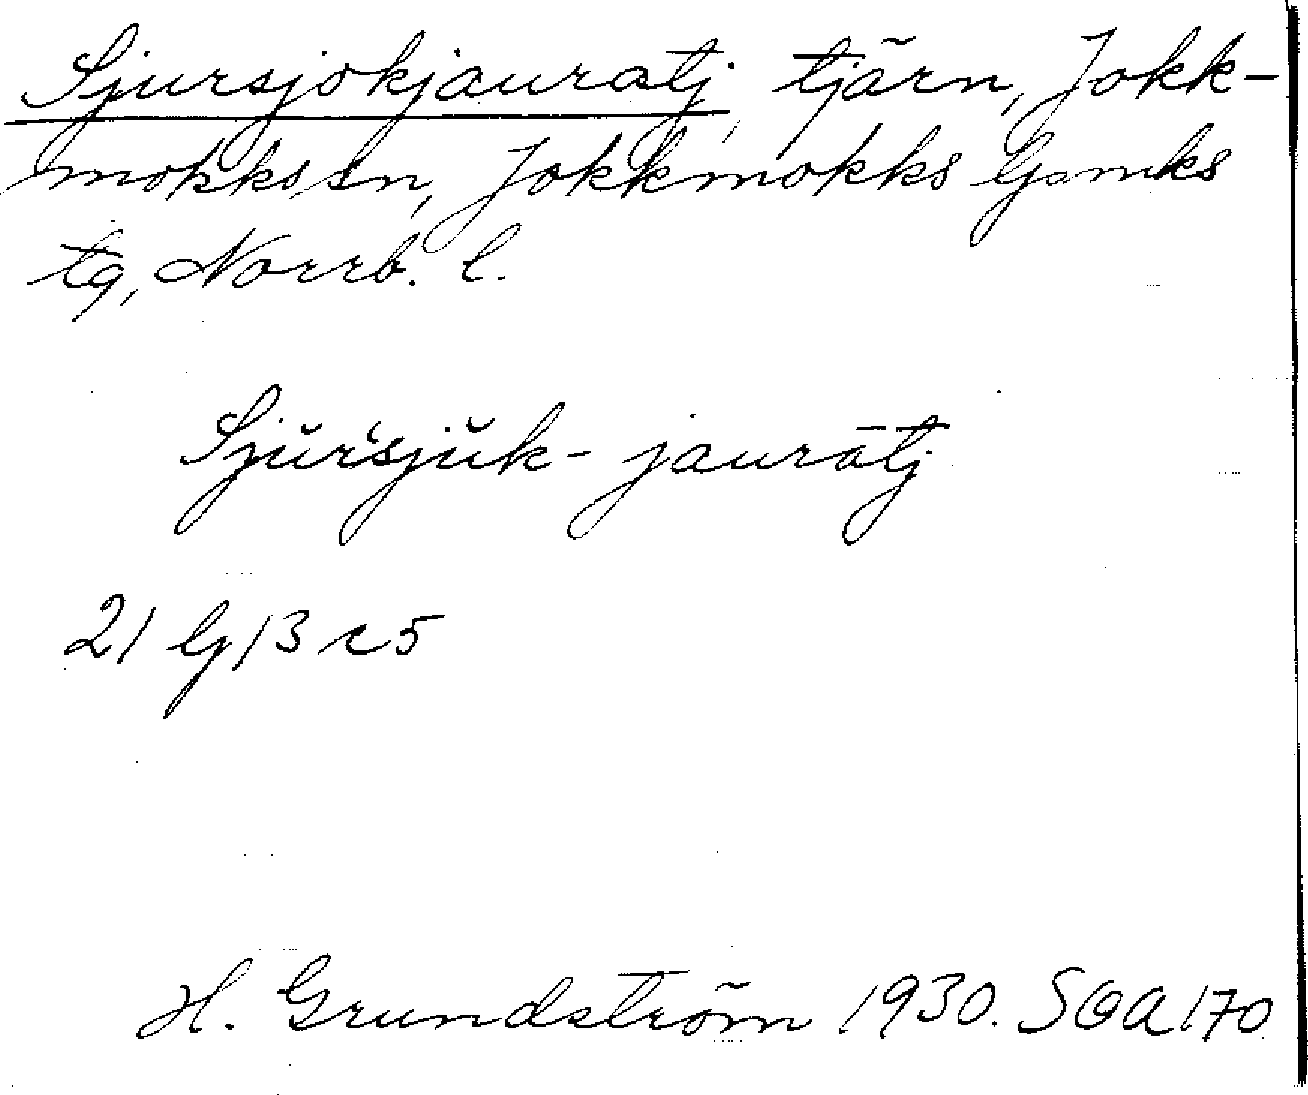 Sjursjokjauratj, tjärn, Jokk-
mokks sn, Jokkmokks lpmks
tg, Norrb. l.
Sjŭr'sjŭk-jaurātj
21 G 13 c5
H. Grundström 1930. SOA 170